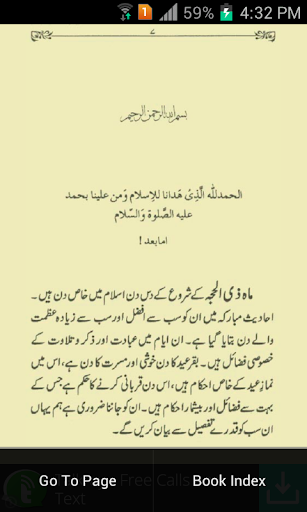 59% 4:32 PM
۷
بسم اللہ الرحمٰن الرحیم
الحمدللہ الَّذِیْ ھَدَانا للإسلام وَمن علینا بحمد
علیہ الصَّلوۃ وَالسَّلام
امابعد !
ماہ ذی الحجہ کے شروع کے دس دن اسلام میں خاص دن ہیں۔
احادیث مبارکہ میں ان کو سب سے افضل اور سب سے زیادہ عظمت
والے دن بتایا ہے۔ ان ایام میں عبادت اور ذکر و تلاوت کے
خصوصی فضائل ہیں۔ بقرعید کا دن خوشی اور مسرت کا دن ہے، اس میں
نماز عید کے خاص احکام ہیں، اس دن قربانی کرنے کا حکم ہے جس کے
بہت سے فضائل اور بیشمار احکام ہیں۔ ان کو جاننا ضروری ہے ہم یہاں
ان سب کو قدرے تفصیل سے بیان کریں گے۔
Go To Page Book Index
Free Calls
Text